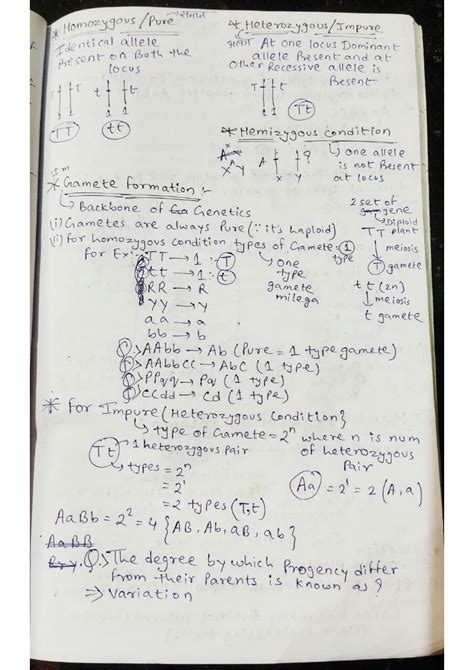 * Homozygous/Pure → समान
Identical allele
Present on Both the
locus
T T t t
1 1 1 1
TT tt
* Heterozygous/Impure
At one locus Dominant
allele Present and at
other Recessive allele is
Present
T t
1 1
Tt
* Hemizygous condition
A ?
X Y
X Y
one allele
is not Present
at locus
Im
* Gamete formation :-
Backbone of Genetics
(i) Gametes are always Pure (∵ it's Haploid)
(i) for homozygous condition types of Gamete: 1
type
For Ex:- TT → 1 : T
tt → 1 : t
RR → R
yy → y
aa → a
bb → b
One
type
gamete
milega
2 set of
gene
Diploid
TT plant
↓ meiosis
T gamete
tt (2n)
↓ meiosis
t gamete
Q.> AAbb → Ab (Pure = 1 type gamete)
Q.> AAbbCC → AbC (1 type)
Q.> PPqq → Pq (1 type)
Q.> CCdd → Cd (1 type)
* For Impure (Heterozygous Condition}
type of Gamete = 2ⁿ where n is num
of heterozygous
Pair
Tt → 1 heterozygous Pair
→ types = 2ⁿ
= 2¹
= 2 types (T,t)
Aa = 2¹ = 2 (A, a)
AaBb = 2² = 4 {AB, Ab, aB, ab}
AaBB
Q.> The degree by which Progency differ
from their Parents is known as ?
⇒ Variation